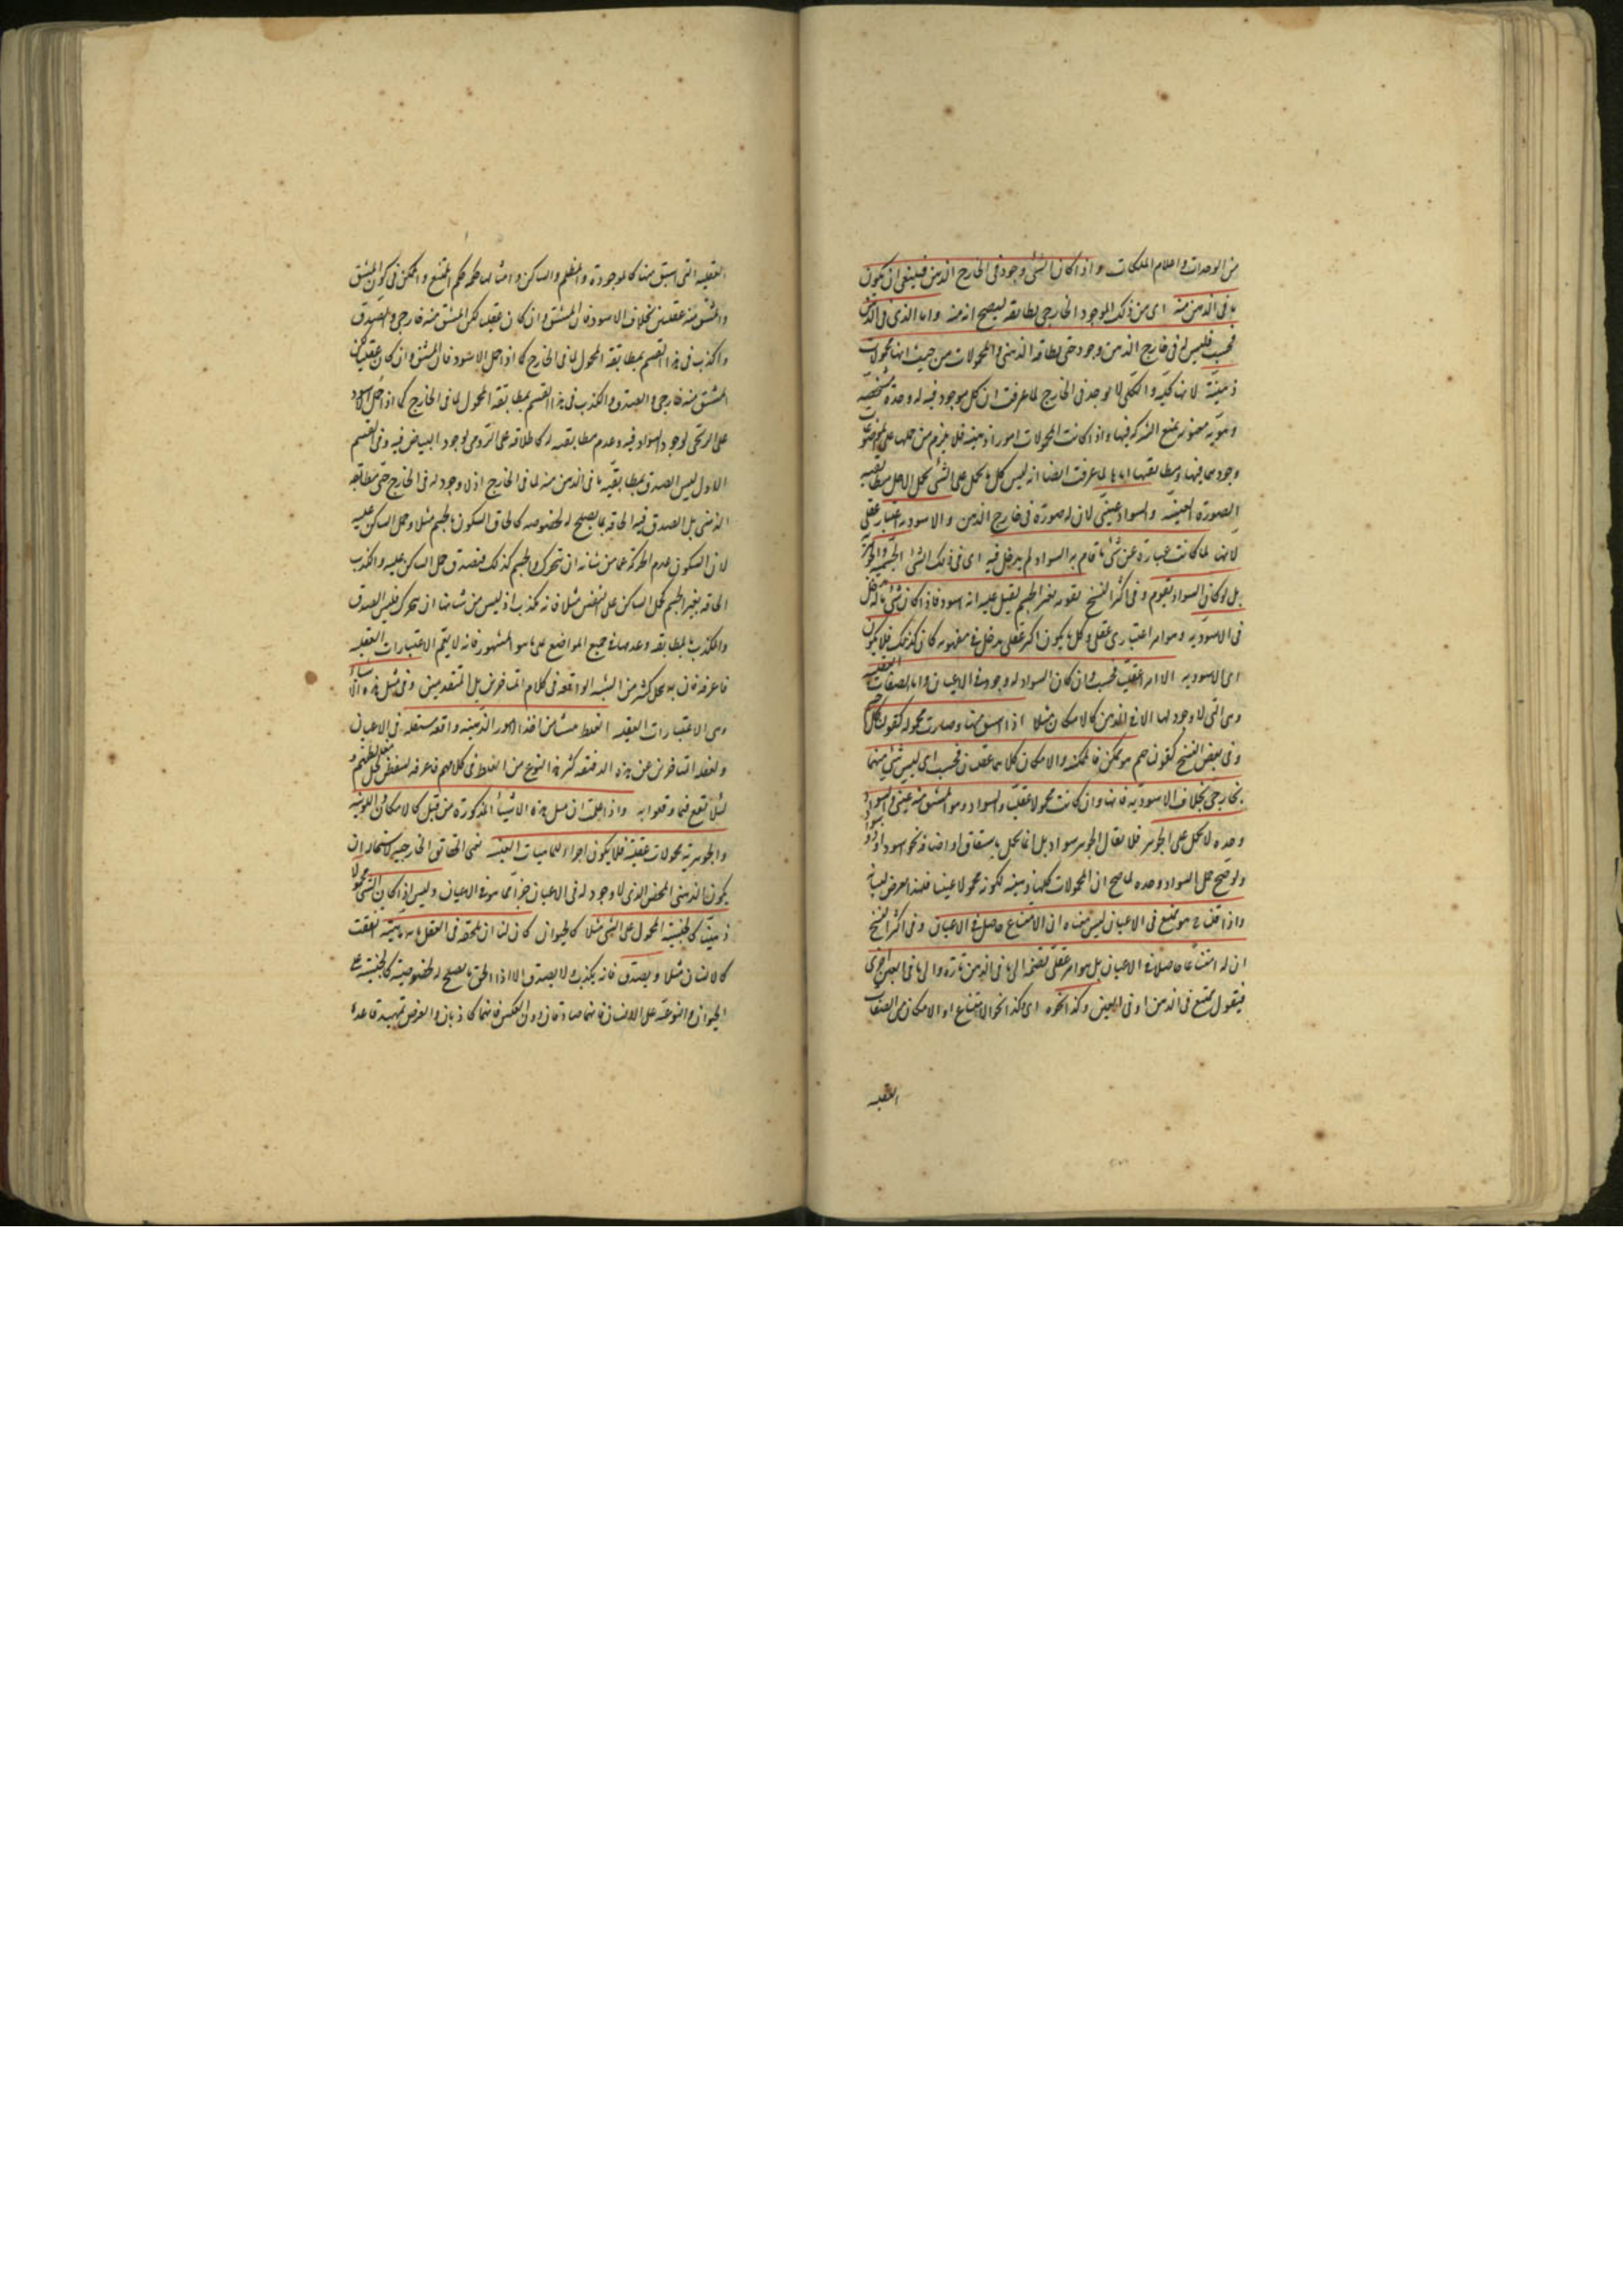 من الوحدات واعدام الملكات واذا كان للشئ وجود فى الخارج الذهن فينبغى ان يكون
ما فى الذهن منه اى من ذلك الموجود الخارجى يطابقه ليصح انه منه واما الذى فى الذهن
فحسب فليس له فى خارج الذهن وجود حتى يطابقه الذهنى والمحمولات من حيث انها محمولات
ذهنية لانها كلية والكلى لا يوجد فى الخارج لما عرفت ان كل موجود فيه له وحدة شخصية
وهوية يمنع الشركة فيها واذا كانت المحمولات امورا ذهنية فلا يلزم من حملها على الموضوعات
وجودها فيها ومطابقتها اياها لما عرفت ايضا انه ليس كل ما يحمل على الشئ يحمل لاجل مطابقته
الصورة العينية والسواد عينى لان له صورة فى خارج الذهن والاسودية اعتبار عقلى
لانها لما كانت عبارة عن شئ ما قام به السواد لم يدخل فيه اى فى ذلك الشئ الجسمية والجوهرية
بل لو كان السواد يقوم وفى اكثر النسخ تقومه بغير الجسم لقيل عليه انه اسود فاذا كان شئ ما له مدخل
فى الاسودية وهو امر اعتبارى عقلى وكل ما يكون امر عقلى يدخل فى مفهومه كان كذلك فلا يكون
اى الاسودية الا امرا عقليا فحسب وان كان السواد له وجود فى الاعيان واما الصفات العقلية
وهى التى لا وجود لها الا فى الذهن كالامكان مثلا اذا اشتق منها وصارت محمولة كقولنا كل ج
وفى بعض النسخ كقولهم هو ممكن فالممكنية والامكان كلاهما عقليان فحسب اى ليس شئ منهما
بخارجى بخلاف الاسودية فانها وان كانت محمولا عقليا والسواد وهو المشتق منه عينى والسواد
وحده لا يحمل على الجوهر فلا يقال الجوهر سواد بل انما يحمل باشتقاق او اضافة نحو اسود او ذو سواد
ولو صح حمل السواد وحده لما صح ان المحمولات كلها ذهنية لكونه محمولا عينيا فلهذا تعرض لبيانه
واذا قلنا ج هو ممتنع فى الاعيان ليس معناه ان الامتناع حاصل فى الاعيان وفى اكثر النسخ
ان له امتناعا حاصلا فى الاعيان بل هو امر عقلى نضمه الى ما فى الذهن تارة والى ما فى العين اخرى
فيقول ممتنع فى الذهن او فى العين وكذا نحوه اى وكذا نحو الامتناع او الامكان من الصفات
العقلية
العقلية التى اشتق منها كالموجودة والمظلم والساكن وامثالها حكمها حكم الممتنع والممكن فى كون المشتق
والمشتق منه عقليين بخلاف الاسود فان المشتق وان كان عقليا لكن المشتق منه خارجى والصدق
والكذب فى هذا القسم بمطابقة المحمول لما فى الخارج كما اذا حمل الاسود فان المشتق وان كان عقليا لكن
المشتق منه خارجى والصدق والكذب فى هذا القسم بمطابقة المحمول لما فى الخارج كما اذا حمل الاسود
على الزنجى لوجود السواد فيه وعدم مطابقته له كاطلاقه على الرومى لوجود البياض فيه وفى القسم
الاول ليس الصدق بمطابقة ما فى الذهن منه لما فى الخارج اذ لا وجود له فى الخارج حتى يطابقه
الذهنى بل الصدق فيه الحاقه بما يصلح له لخصوصه كالحاق السكون بالجسم مثلا وحمل الساكن عليه
لان السكون عدم الحركة عما من شانه ان يتحرك والجسم كذلك فيصدق حمل الساكن عليه والكذب
الحاقه بغير الجسم كحمل الساكن على النفس مثلا فانه يكذب اذ ليس من شانها ان يتحرك فليس الصدق
والكذب بالمطابقة وعدمها فى جميع المواضع على ما هو المشهور فانه لا يعم الاعتبارات العقلية
فاعرفه فان به يحل كثير من الشبه الواقعة فى كلام المتاخرين بل المتقدمين وفى مثل هذه الاشياء
وهى الاعتبارات العقلية الغلط منشأ من اخذ الامور الذهنية واقعة مستقلة فى الاعيان
ولغفلة المتاخرين عن هذه الدقيقة كثر هذا النوع من الغلط فى كلامهم فاعرفه لتتفطن لمحل غلطهم و
لئلا تقع فيما وقعوا به واذا علمت ان مثل هذه الاشياء المذكورة من قبل كالامكان واللونية
والجوهرية محمولات عقلية فلا يكون اجزاء للماهيات العينية نعنى الحقائق الخارجية لاستحالة ان
يكون الذهنى المحض الذى لا وجود له فى الاعيان جزءا لما هو فى الاعيان وليس اذا كان الشئ محمولا
ذهنيا كالجنسية المحمول على الشئ مثلا كالحيوان كان لنا ان نلحقه فى العقل باى ماهية اتفقت
كالانسان مثلا ويصدق فانه يكذب ولا يصدق الا اذا الحق بما يصلح له لخصوصيته كالجنسية على
الحيوان والنوعية على الانسان فانهما صادقان دون العكس فانهما كاذبان والغرض تمهيد قاعدة